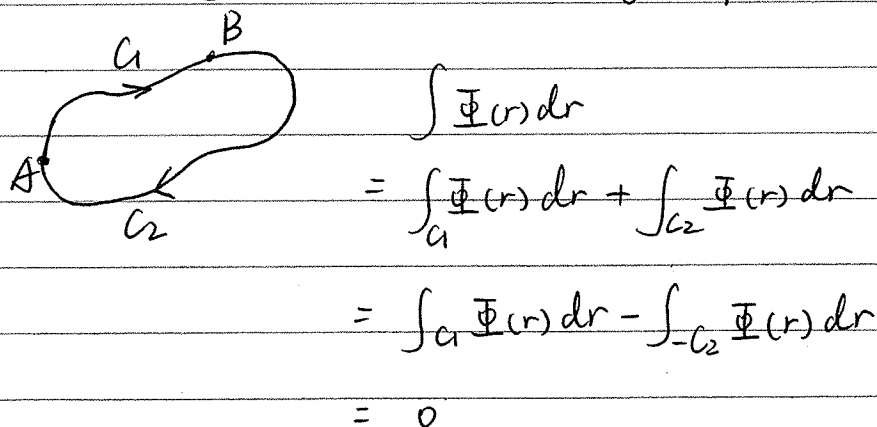 B
C1
A
C2
∫ Φ(r) dr
= ∫C1 Φ(r) dr + ∫C2 Φ(r) dr
= ∫C1 Φ(r) dr - ∫-C2 Φ(r) dr
= 0